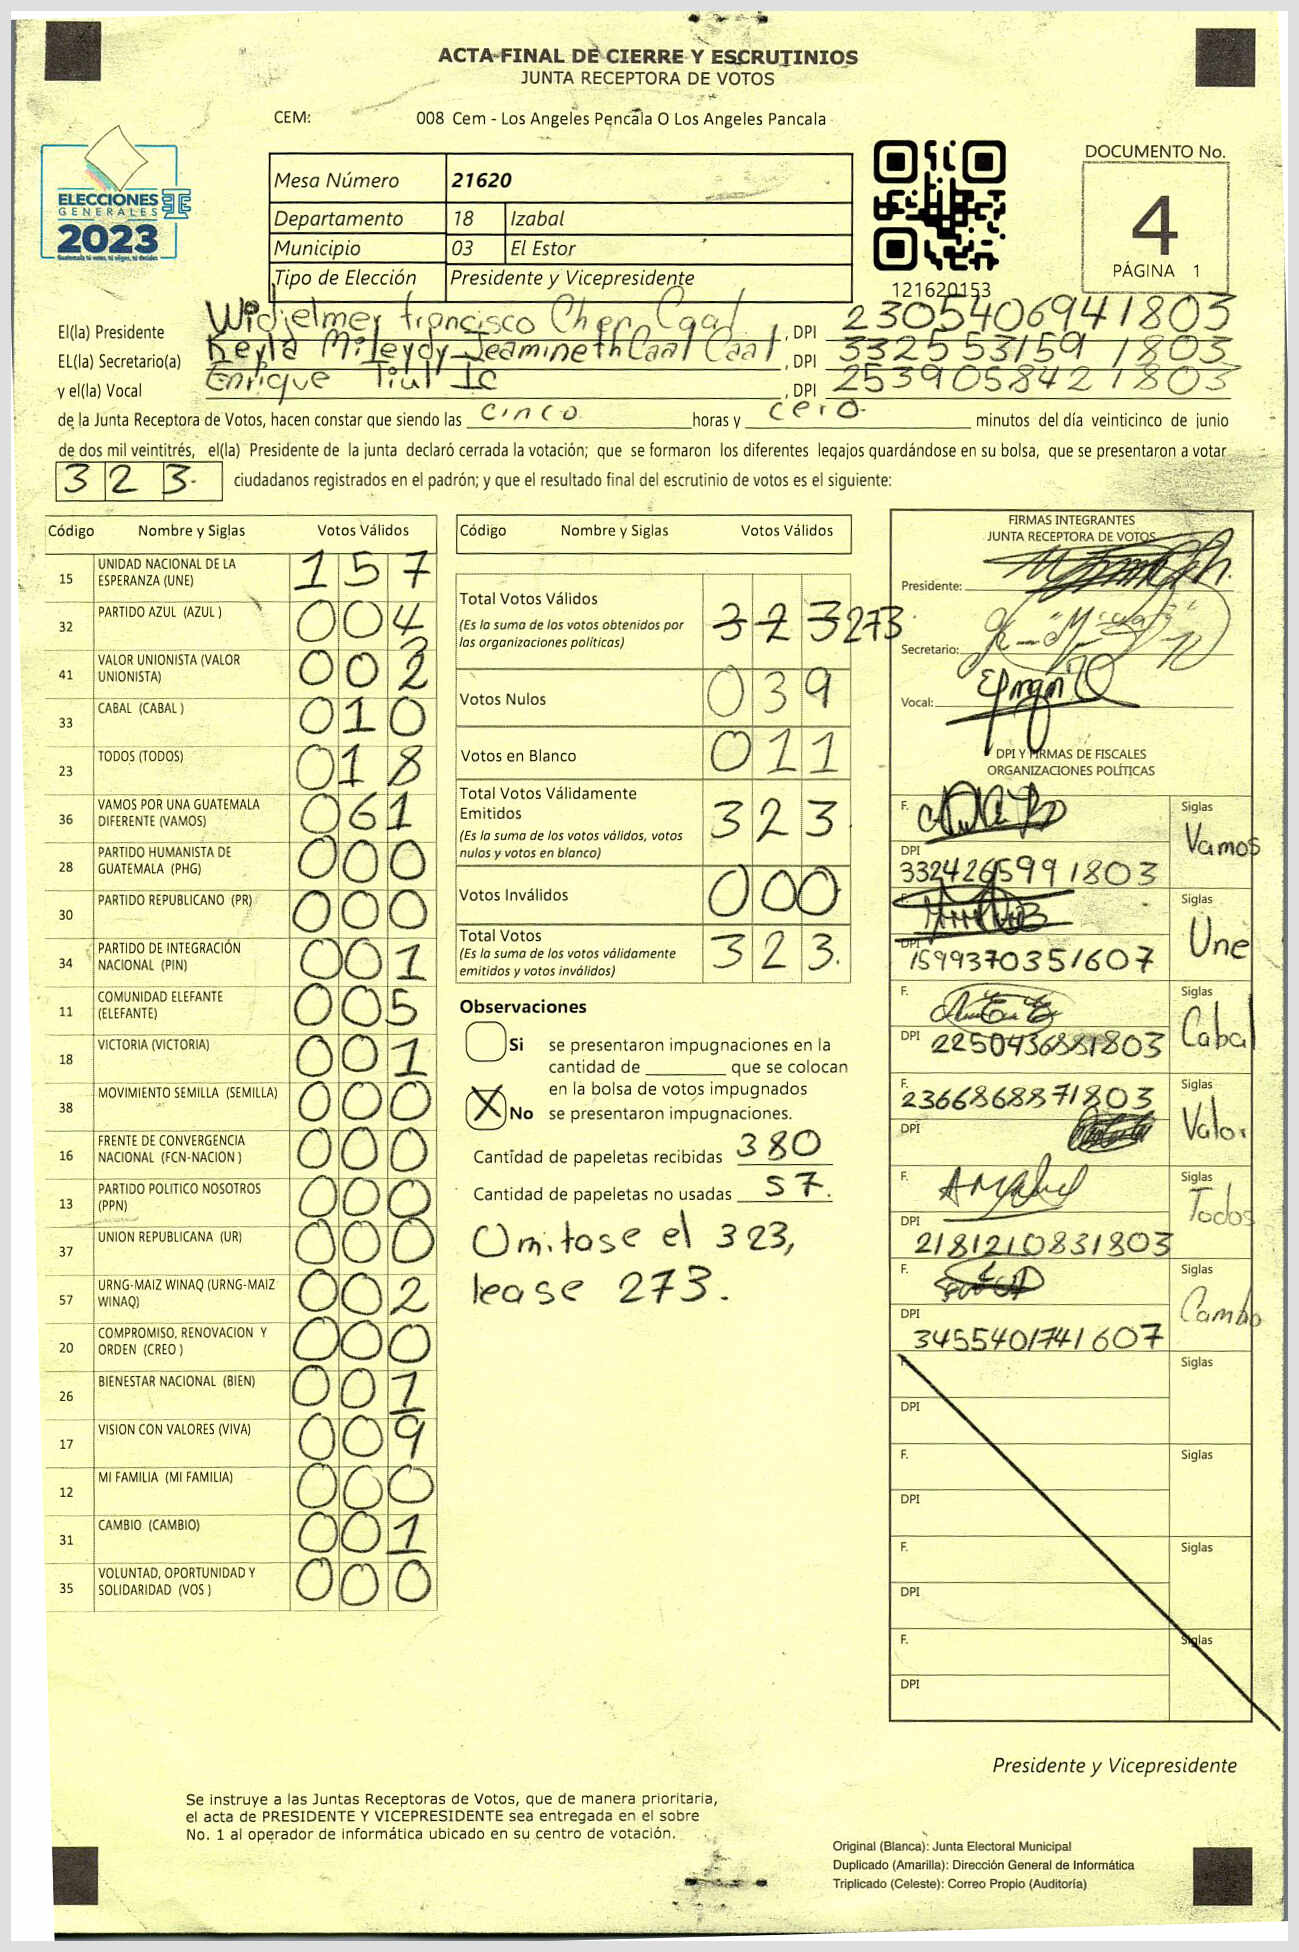 ACTA FINAL DE CIERRE Y ESCRUTINIOS
JUNTA RECEPTORA DE VOTOS
CEM: 008 Cem - Los Angeles Pencala O Los Angeles Pancala
ELECCIONES
GENERALES
2023
Guatemala tú votas, tú eliges, tú decides
Mesa Número 21620
Departamento 18 Izabal
Municipio 03 El Estor
Tipo de Elección Presidente y Vicepresidente
121620153
DOCUMENTO No.
4
PÁGINA 1
El(la) Presidente Widjelmer francisco Chen Caal, DPI 2305406941803
EL(la) Secretario(a) Keyla Mileydy Jeamineth Caal Caal, DPI 332553159 1803
y el(la) Vocal Enrique Tiul Ic, DPI 2539058421803
de la Junta Receptora de Votos, hacen constar que siendo las cinco horas y cero minutos del día veinticinco de junio
de dos mil veintitrés, el(la) Presidente de la junta declaró cerrada la votación; que se formaron los diferentes legajos guardándose en su bolsa, que se presentaron a votar
323. ciudadanos registrados en el padrón; y que el resultado final del escrutinio de votos es el siguiente:
Código Nombre y Siglas Votos Válidos
15 UNIDAD NACIONAL DE LA ESPERANZA (UNE) 157
32 PARTIDO AZUL (AZUL ) 004
41 VALOR UNIONISTA (VALOR UNIONISTA) 002
33 CABAL (CABAL ) 010
23 TODOS (TODOS) 018
36 VAMOS POR UNA GUATEMALA DIFERENTE (VAMOS) 061
28 PARTIDO HUMANISTA DE GUATEMALA (PHG) 000
30 PARTIDO REPUBLICANO (PR) 000
34 PARTIDO DE INTEGRACIÓN NACIONAL (PIN) 001
11 COMUNIDAD ELEFANTE (ELEFANTE) 005
18 VICTORIA (VICTORIA) 001
38 MOVIMIENTO SEMILLA (SEMILLA) 000
16 FRENTE DE CONVERGENCIA NACIONAL (FCN-NACION ) 000
13 PARTIDO POLITICO NOSOTROS (PPN) 000
37 UNION REPUBLICANA (UR) 000
57 URNG-MAIZ WINAQ (URNG-MAIZ WINAQ) 002
20 COMPROMISO, RENOVACION Y ORDEN (CREO ) 000
26 BIENESTAR NACIONAL (BIEN) 001
17 VISION CON VALORES (VIVA) 009
12 MI FAMILIA (MI FAMILIA) 000
31 CAMBIO (CAMBIO) 001
35 VOLUNTAD, OPORTUNIDAD Y SOLIDARIDAD (VOS ) 000
Código Nombre y Siglas Votos Válidos
Total Votos Válidos 323 273
(Es la suma de los votos obtenidos por
las organizaciones políticas)
Votos Nulos 039
Votos en Blanco 011
Total Votos Válidamente
Emitidos 323.
(Es la suma de los votos válidos, votos
nulos y votos en blanco)
Votos Inválidos 000
Total Votos 323.
(Es la suma de los votos válidamente
emitidos y votos inválidos)
Observaciones
Si se presentaron impugnaciones en la
cantidad de ________ que se colocan
en la bolsa de votos impugnados
X No se presentaron impugnaciones.
Cantidad de papeletas recibidas 380
Cantidad de papeletas no usadas 57.
Omitase el 323,
lease 273.
FIRMAS INTEGRANTES
JUNTA RECEPTORA DE VOTOS
Presidente:
Secretario:
Vocal:
DPI Y FIRMAS DE FISCALES
ORGANIZACIONES POLÍTICAS
F. Siglas Vamos
DPI 3324265991803
F. Siglas Une
DPI 1599370351607
F. Siglas Cabal
DPI 2250436881803
F. 2366868871803 Siglas Valor
DPI
F. Siglas Todos
DPI 2181210831803
F. Siglas Cambio
DPI 3455401741607
F. Siglas
DPI
F. Siglas
DPI
F. Siglas
DPI
F. Siglas
DPI
Presidente y Vicepresidente
Se instruye a las Juntas Receptoras de Votos, que de manera prioritaria,
el acta de PRESIDENTE Y VICEPRESIDENTE sea entregada en el sobre
No. 1 al operador de informática ubicado en su centro de votación.
Original (Blanca): Junta Electoral Municipal
Duplicado (Amarilla): Dirección General de Informática
Triplicado (Celeste): Correo Propio (Auditoría)